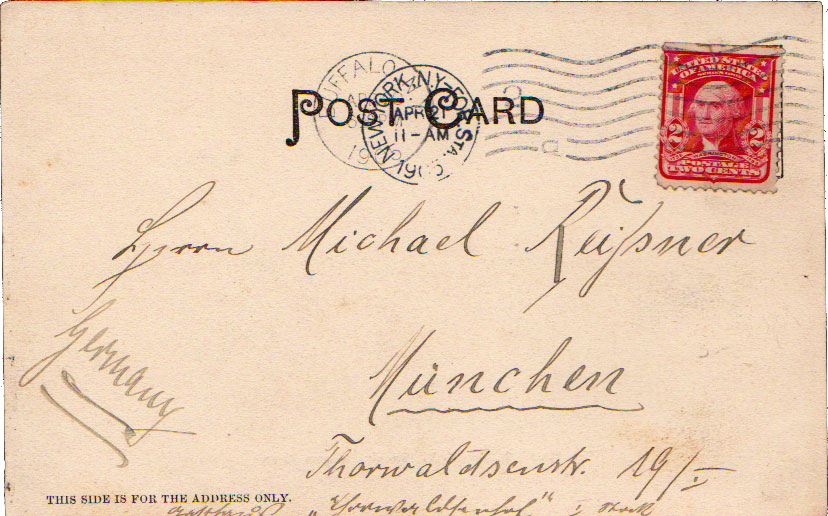 POST CARD
BUFFALO
NEW YORK, N.Y. FOR. STA.
APR 21
11-AM
UNITED STATES
OF AMERICA
2 2
POSTAGE
TWO CENTS
Herrn Michael Reißner
Germany
München
Thorwaldsenstr. 19/I
THIS SIDE IS FOR THE ADDRESS ONLY.
Gasthaus „Thorwaldsenhof“ I Stock